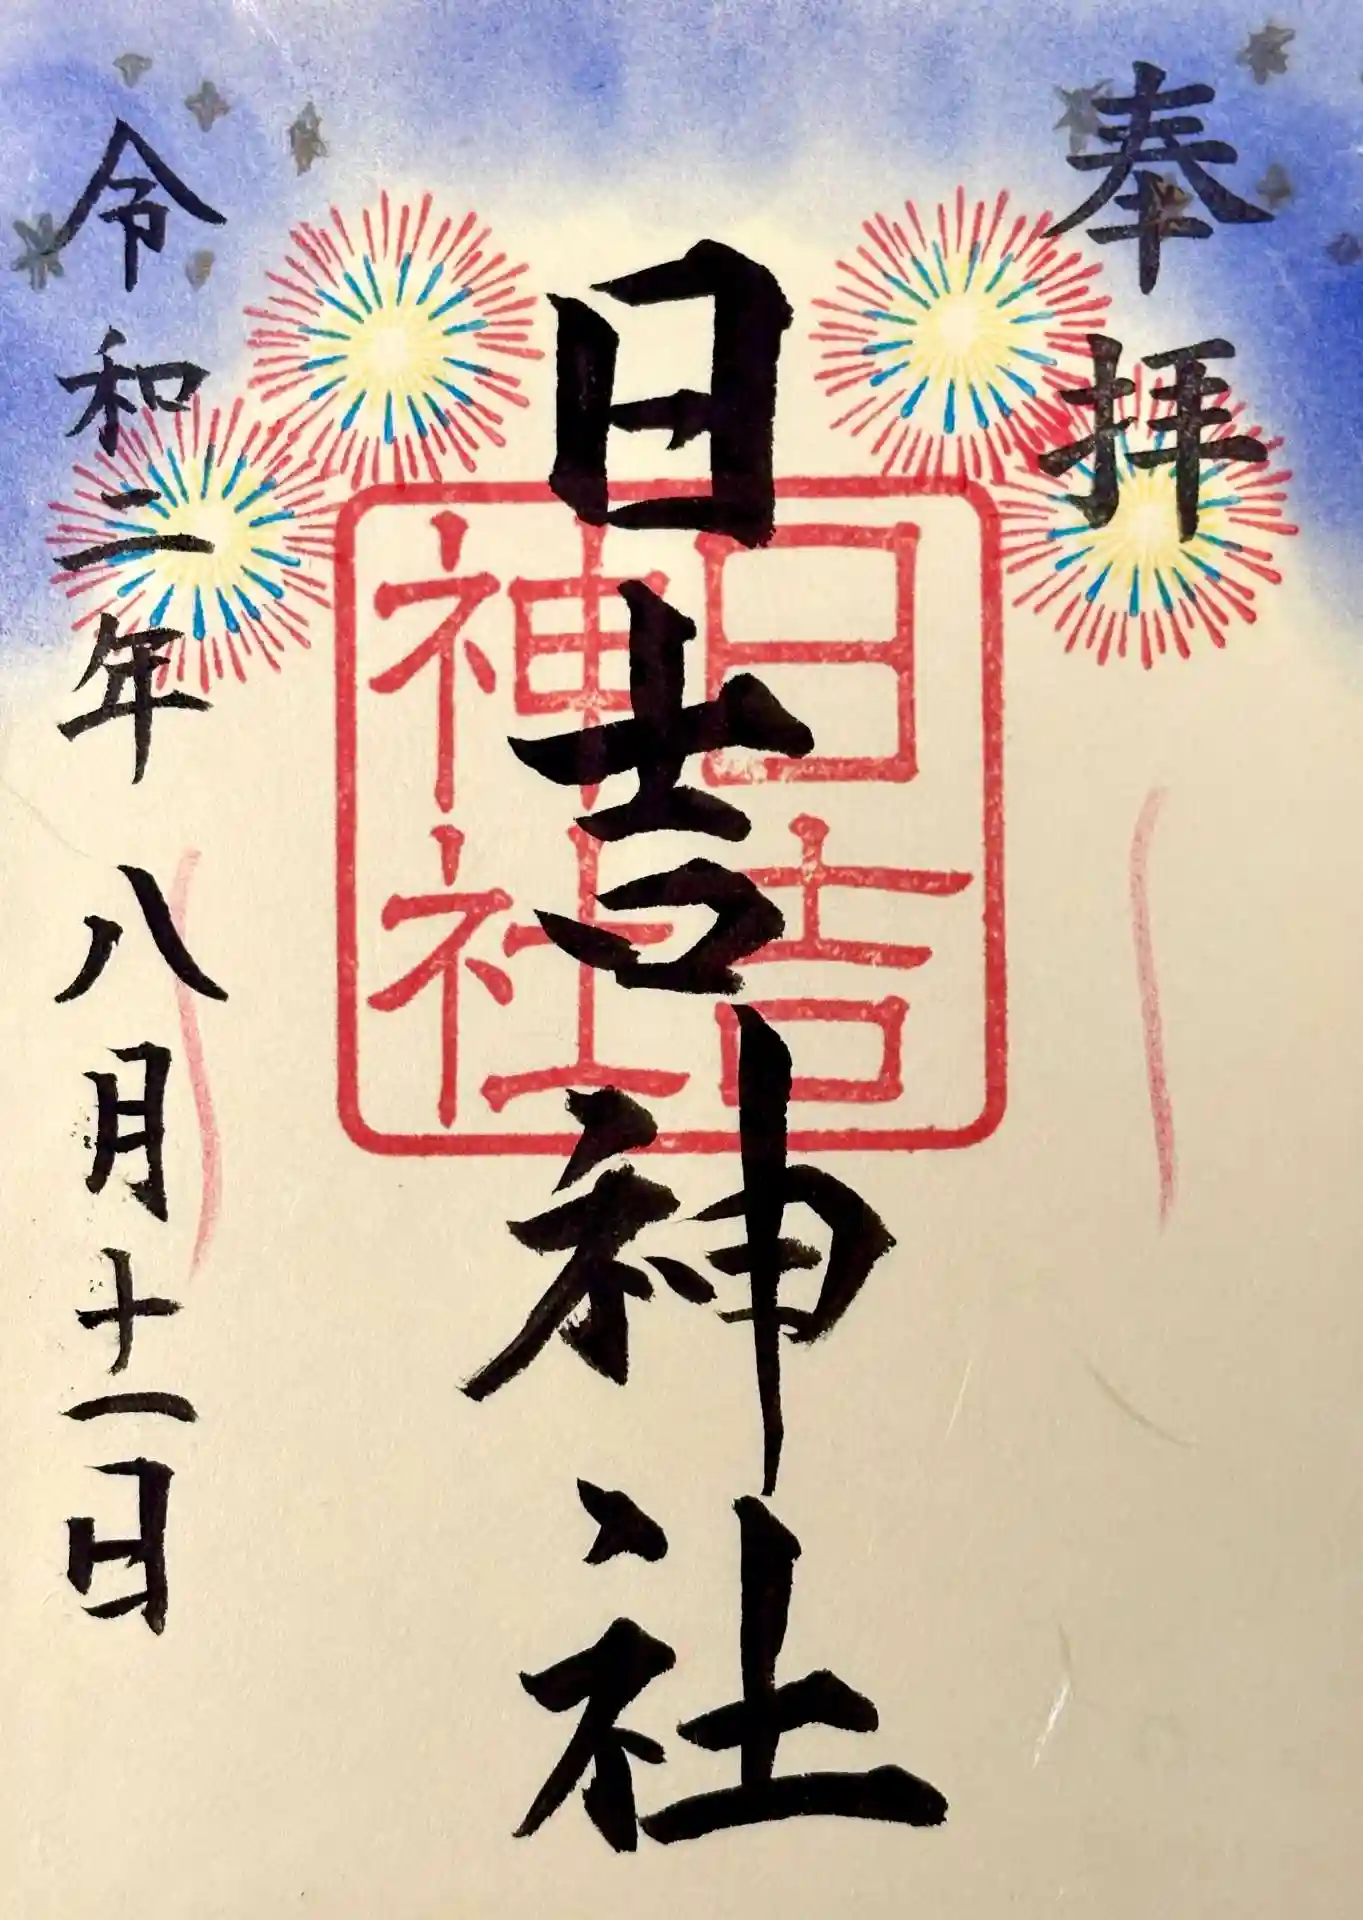 奉拝
日吉神社
日吉
神社
令和二年八月十一日